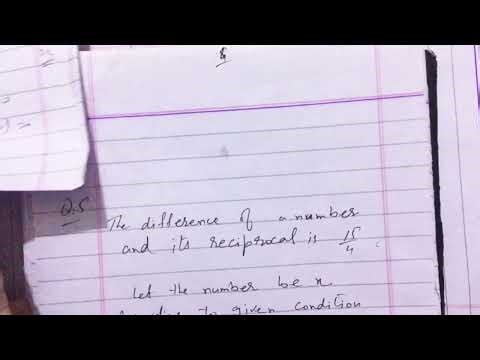 Q.5 The difference of a number
and its reciprocal is 15/4.
Let the number be x
to given condition